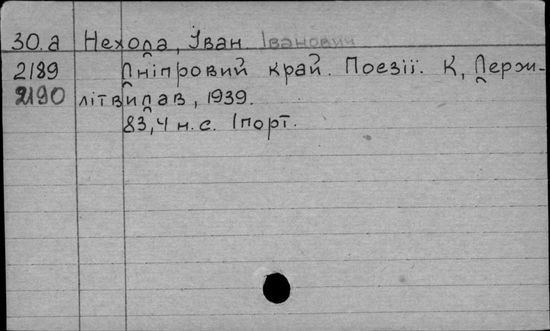 30.а Нехода, Іван Іванович
2189 Дніпровий край. Поезії. К, Держ-
2190 літвидав, 1939.
83,4 н.с. 1порт.